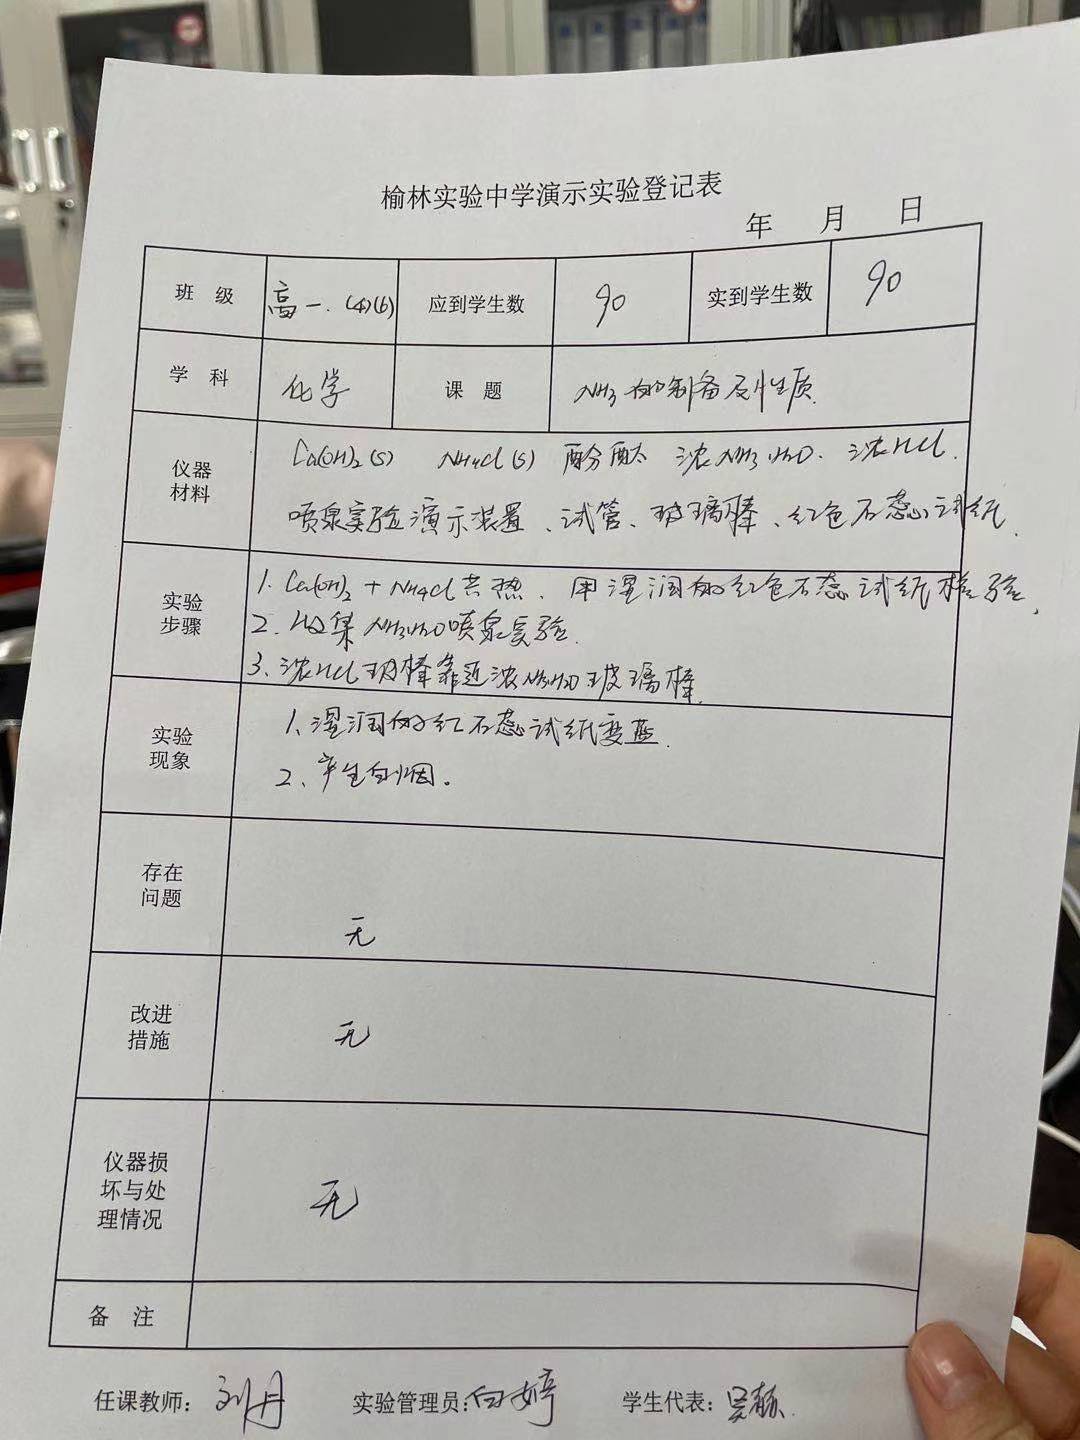 榆林实验中学演示实验登记表
年 月 日
班 级 高一.(4)(6) 应到学生数 90 实到学生数 90
学 科 化学 课 题 NH3的制备及性质.
仪器材料 Ca(OH)2(s) NH4Cl(s) 酚酞 浓NH3·H2O. 浓HCl.
喷泉实验演示装置、试管、玻璃棒、红色石蕊试纸.
实验步骤 1. Ca(OH)2 + NH4Cl共热、用湿润的红色石蕊试纸检验.
2. 收集NH3·H2O喷泉实验.
3. 浓HCl玻棒靠近浓NH3·H2O玻璃棒.
实验现象 1、湿润的红石蕊试纸变蓝.
2、产生白烟。
存在问题 无
改进措施 无
仪器损坏与处理情况 无
备 注
任课教师: 刘丹 实验管理员: 白婷 学生代表: 吴